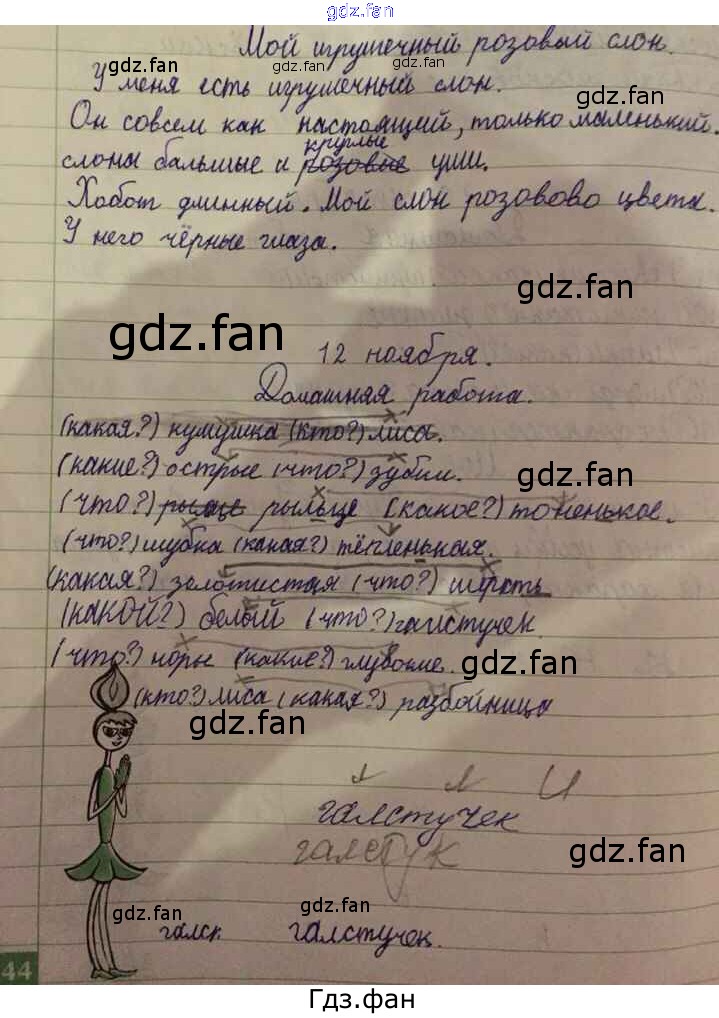 gdz.fan
Мой игрушечный розовый слон.
gdz.fan
У меня есть игрушечный слон.
gdz.fan
Он совсем как настоящий, только маленький.
круглые
слоны бальшые и розовые уши.
gdz.fan
Хобот длинный. Мой слон розовово цвета.
gdz.fan
У него чёрные глаза.
gdz.fan
gdz.fan
12 ноября.
Домашняя работа.
(какая?) кумушка (кто?) лиса.
(какие?) острые (что?) зубки.
gdz.fan
(что?) рыльце (какое?) тоненькое.
(что?) шубка (какая?) тёпленькая.
(какая?) золотистая (что?) шёрсть
(КАКОЙ?) белый (что?) галстучек
gdz.fan
(что?) норы (какие?) глубокие.
gdz.fan
(кто?) лиса (какая?) разбойница
gdz.fan
И
галстучек
галстук
gdz.fan
gdz.fan
gdz.fan
галск галстучек.
gdz.fan
44
Гдз.фан